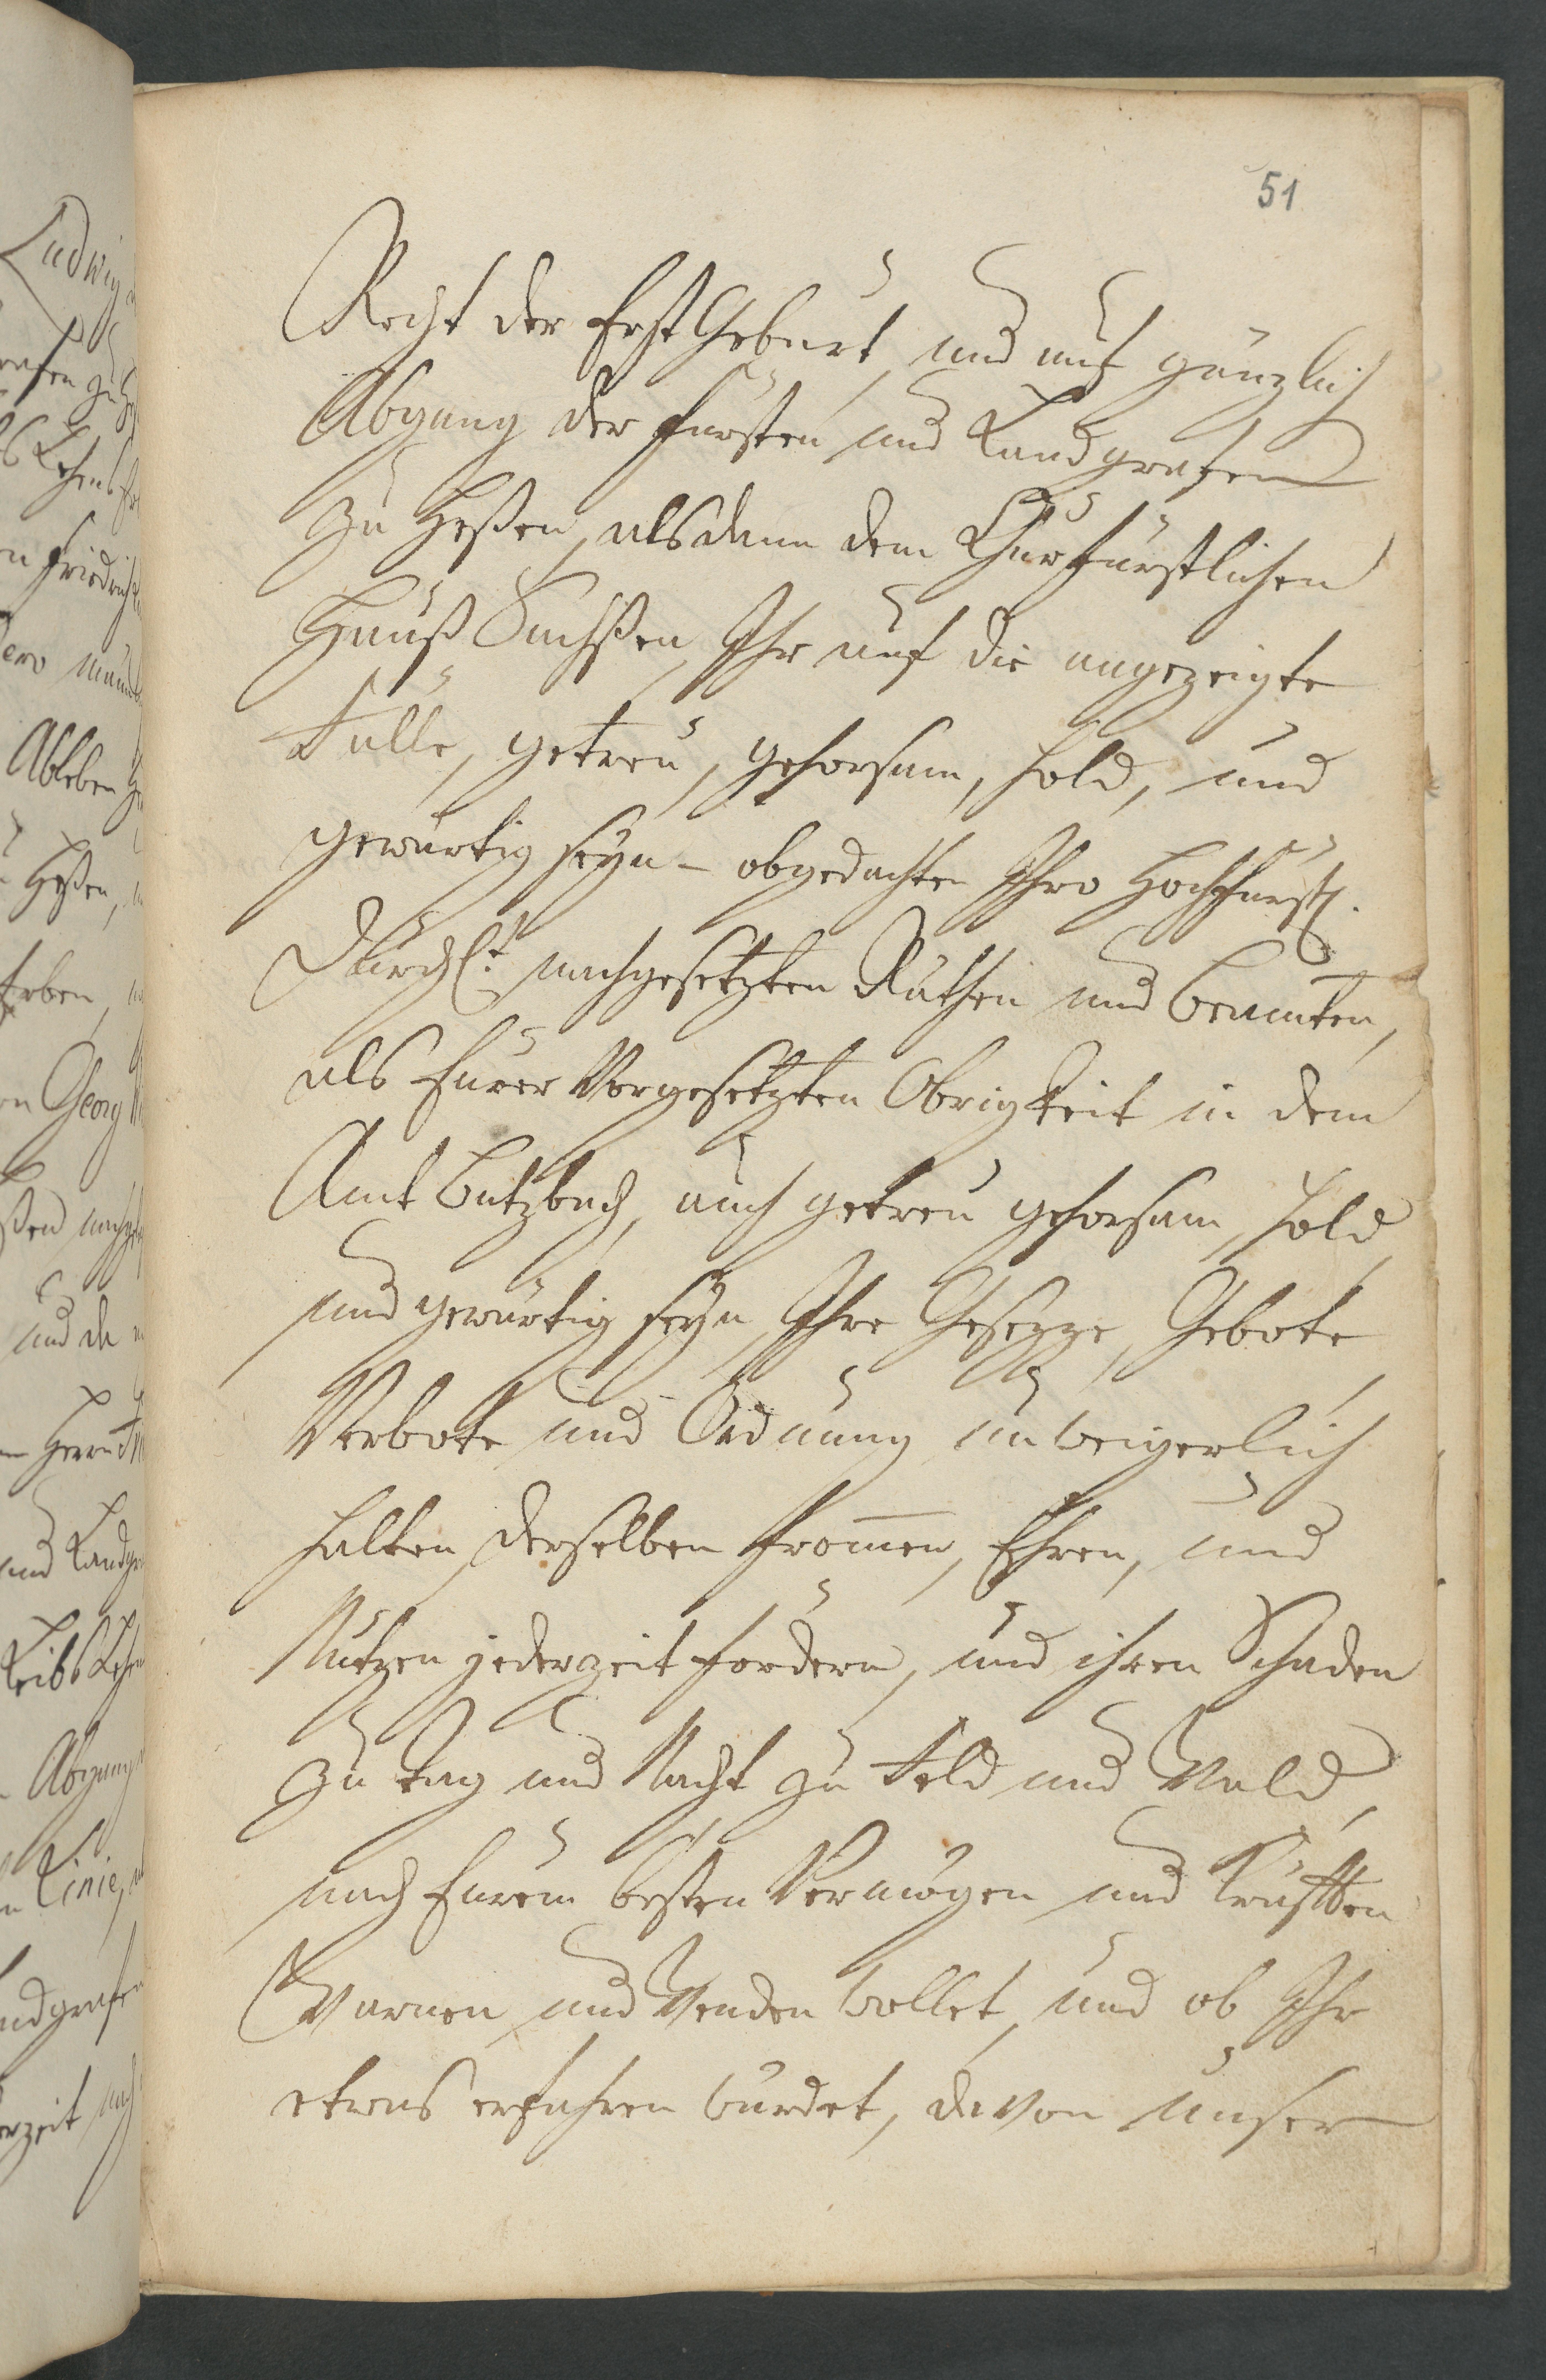 51
Recht der Erst Geburt, und auf gänzlich
Abgang der Fürsten und Landgrafen
zu Heßen, alsdann dem Churfürstlichen
Hauß Sachßen, Ihr auf die angezeigte
Fälle, getreu, gehorsam, hold, und
gewärtig seyn – obgedachten Ihro Hochfürstl.
Durchl.t nachgesetzten Räthen und Beamten,
als Eurer Vorgesetzten Obrigkeit in dem
Amt Butzbach, auch getreu gehorsam, hold
und gewärtig seyn, Ihre Gesezze, Gebote
Verbote und Ordnung unweigerlich
halten, derselben From̄en, Ehren, und
Nutzen jederzeit fordern, und ihren Schaden
zu Tag und Nacht zu Feld und Wald,
nach Eurem besten Vermögen und Kräfften
Warnen und Wenden wollet, und ob Ihr
etwas erfahren würdet, davon unser